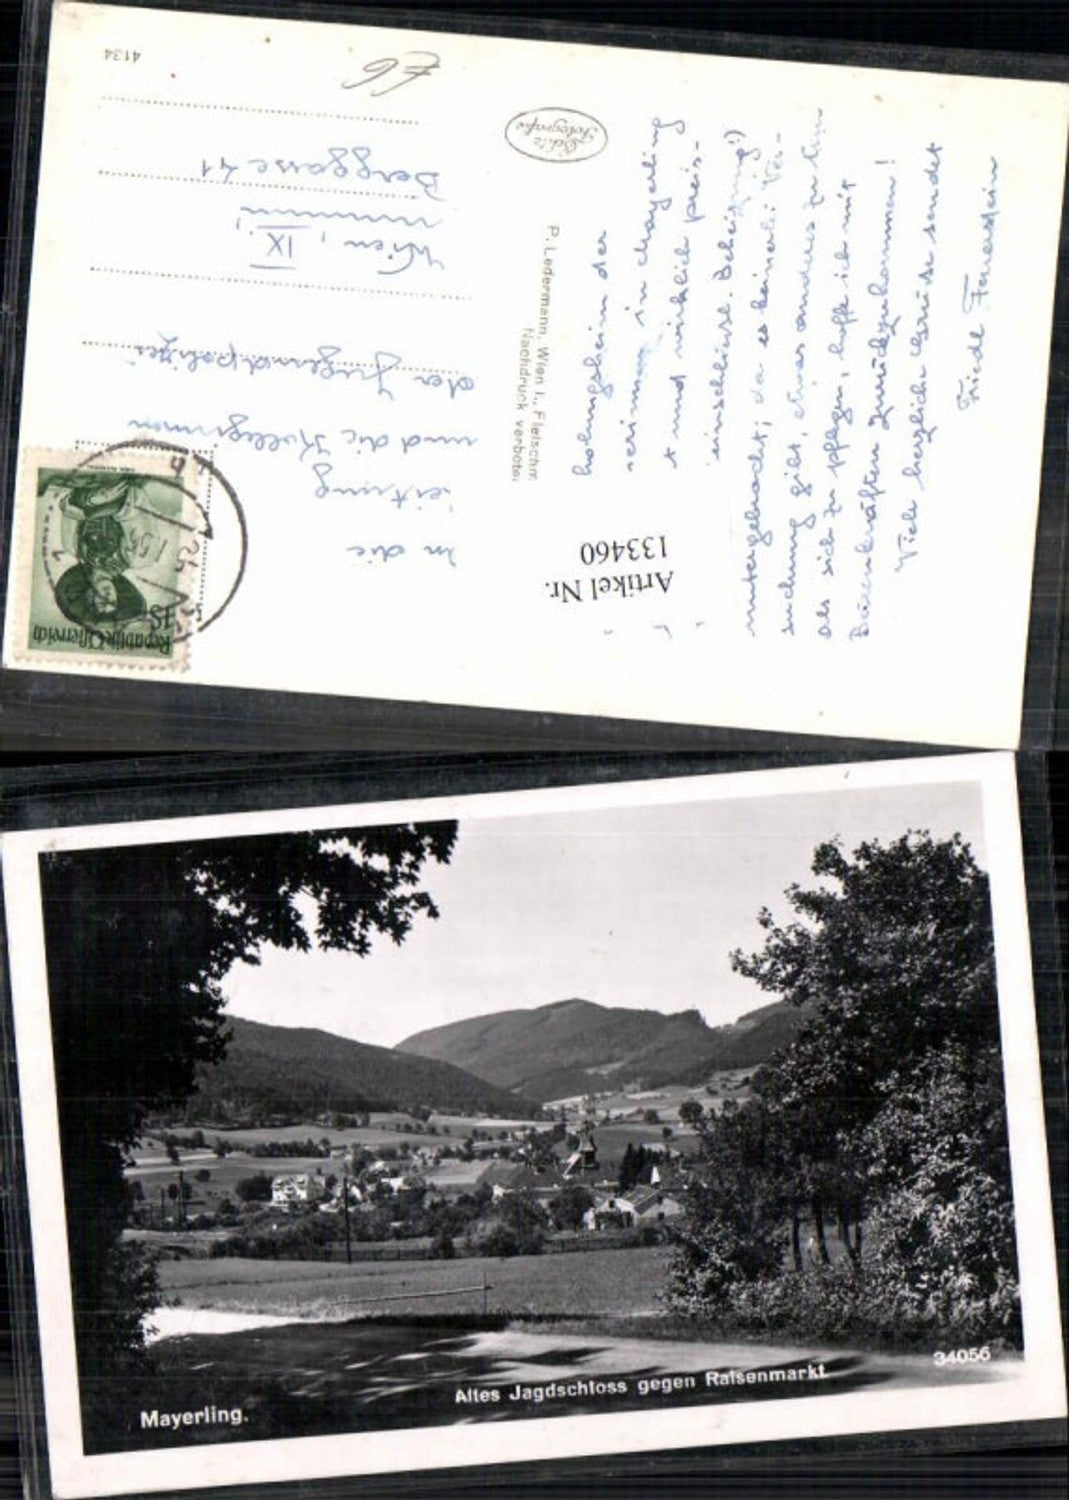 4134
Echte
Fotografie
P. Ledermann, Wien I., Fleischm.
Nachdruck verboten
Republik Österreich
1S
In die
Leitung
und die Kolleginnen
der Jugendpolizei
Wien, IX.,
Berggasse 41
Artikel Nr.
133460
holungsheim der
in Mayerling
und wirklich preis-
untergebracht; da es keinerlei Zer-
gibt, etwas anderes zu tun
als sich zu pflegen, hoffe ich mit
Bärenkräften zurückzukommen!
Viele herzliche Grüße sendet
Friedl Feuerstein
Mayerling.
Altes Jagdschloss gegen Raisenmarkt
34056